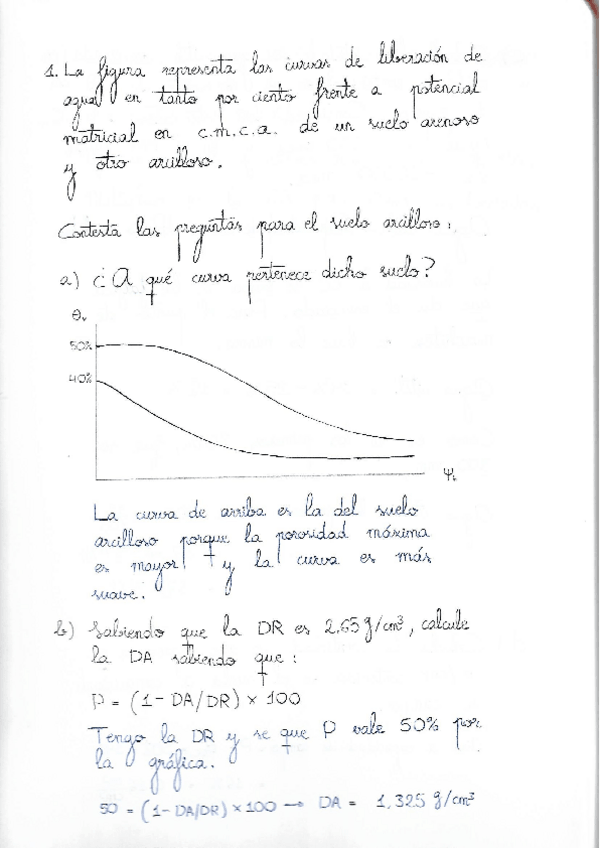 1. La figura representa las curvas de liberación de
agua en tanto por ciento frente a potencial
matricial en c.m.c.a. de un suelo arenoso
y otro arcilloso.
Contesta las preguntas para el suelo arcilloso:
a) ¿A qué curva pertenece dicho suelo?
θv
50%
40%
La curva de arriba es la del suelo
arcilloso porque la porosidad máxima
es mayor y la curva es más
suave.
b) Sabiendo que la DR es 2,65 g/cm³, calcule
la DA sabiendo que:
P = (1 - DA/DR) × 100
Tengo la DR y se que P vale 50% por
la gráfica.
50 = (1 - DA/DR) × 100 → DA = 1,325 g/cm³